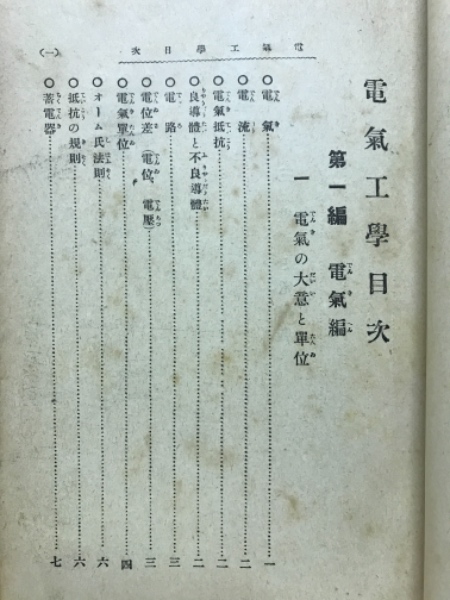 電氣工學目次
(一)
電氣工學目次
第一編 電氣編
一 電氣の大意と單位
○電氣……一
○電流……二
○電氣抵抗……二
○良導體と不良導體……二
○電路……三
○電位差(電位、電壓)……三
○電氣單位……四
○オーム氏法則……六
○抵抗の規則……六
○蓄電器……七